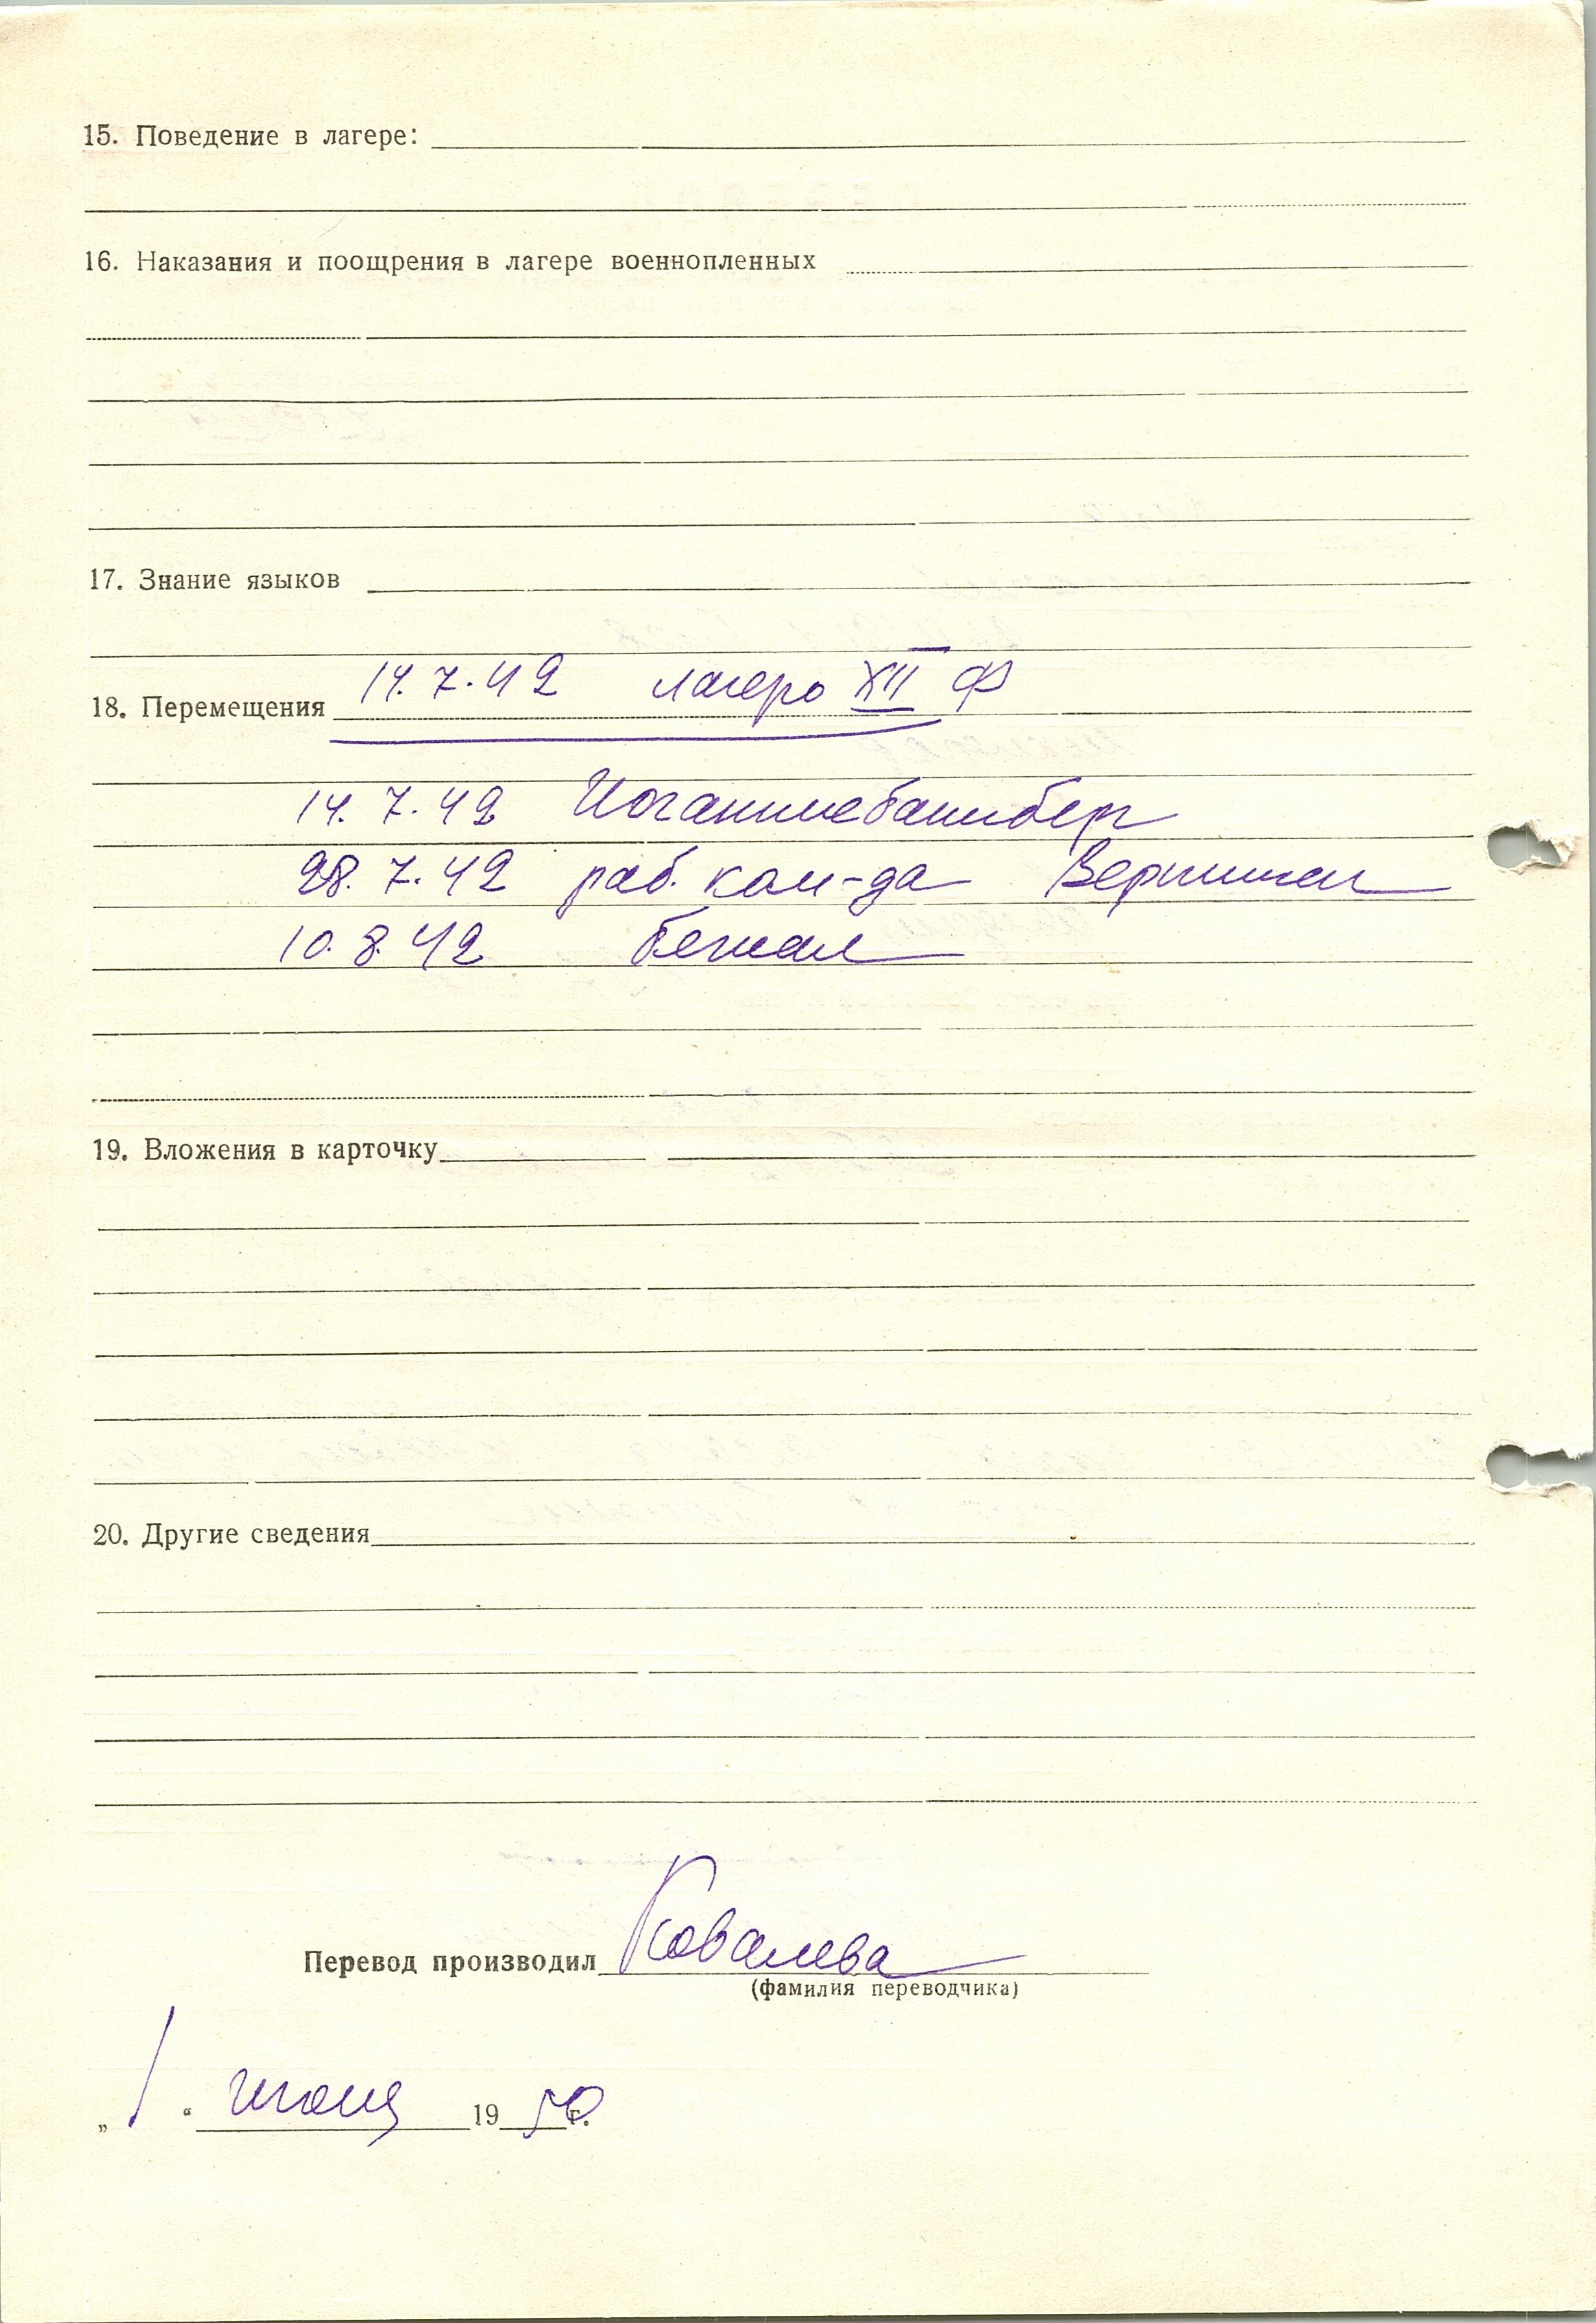 15. Поведение в лагере:
16. Наказания и поощрения в лагере военнопленных
17. Знание языков
18. Перемещения 14.7.42 лагерь XII Ф
14.7.42 Иоганнисбаннберг
28.7.42 раб. ком-да
10.8.42 бежал
19. Вложения в карточку
20. Другие сведения
Перевод производил Ковалева
(фамилия переводчика)
„1“ июня 1950 г.